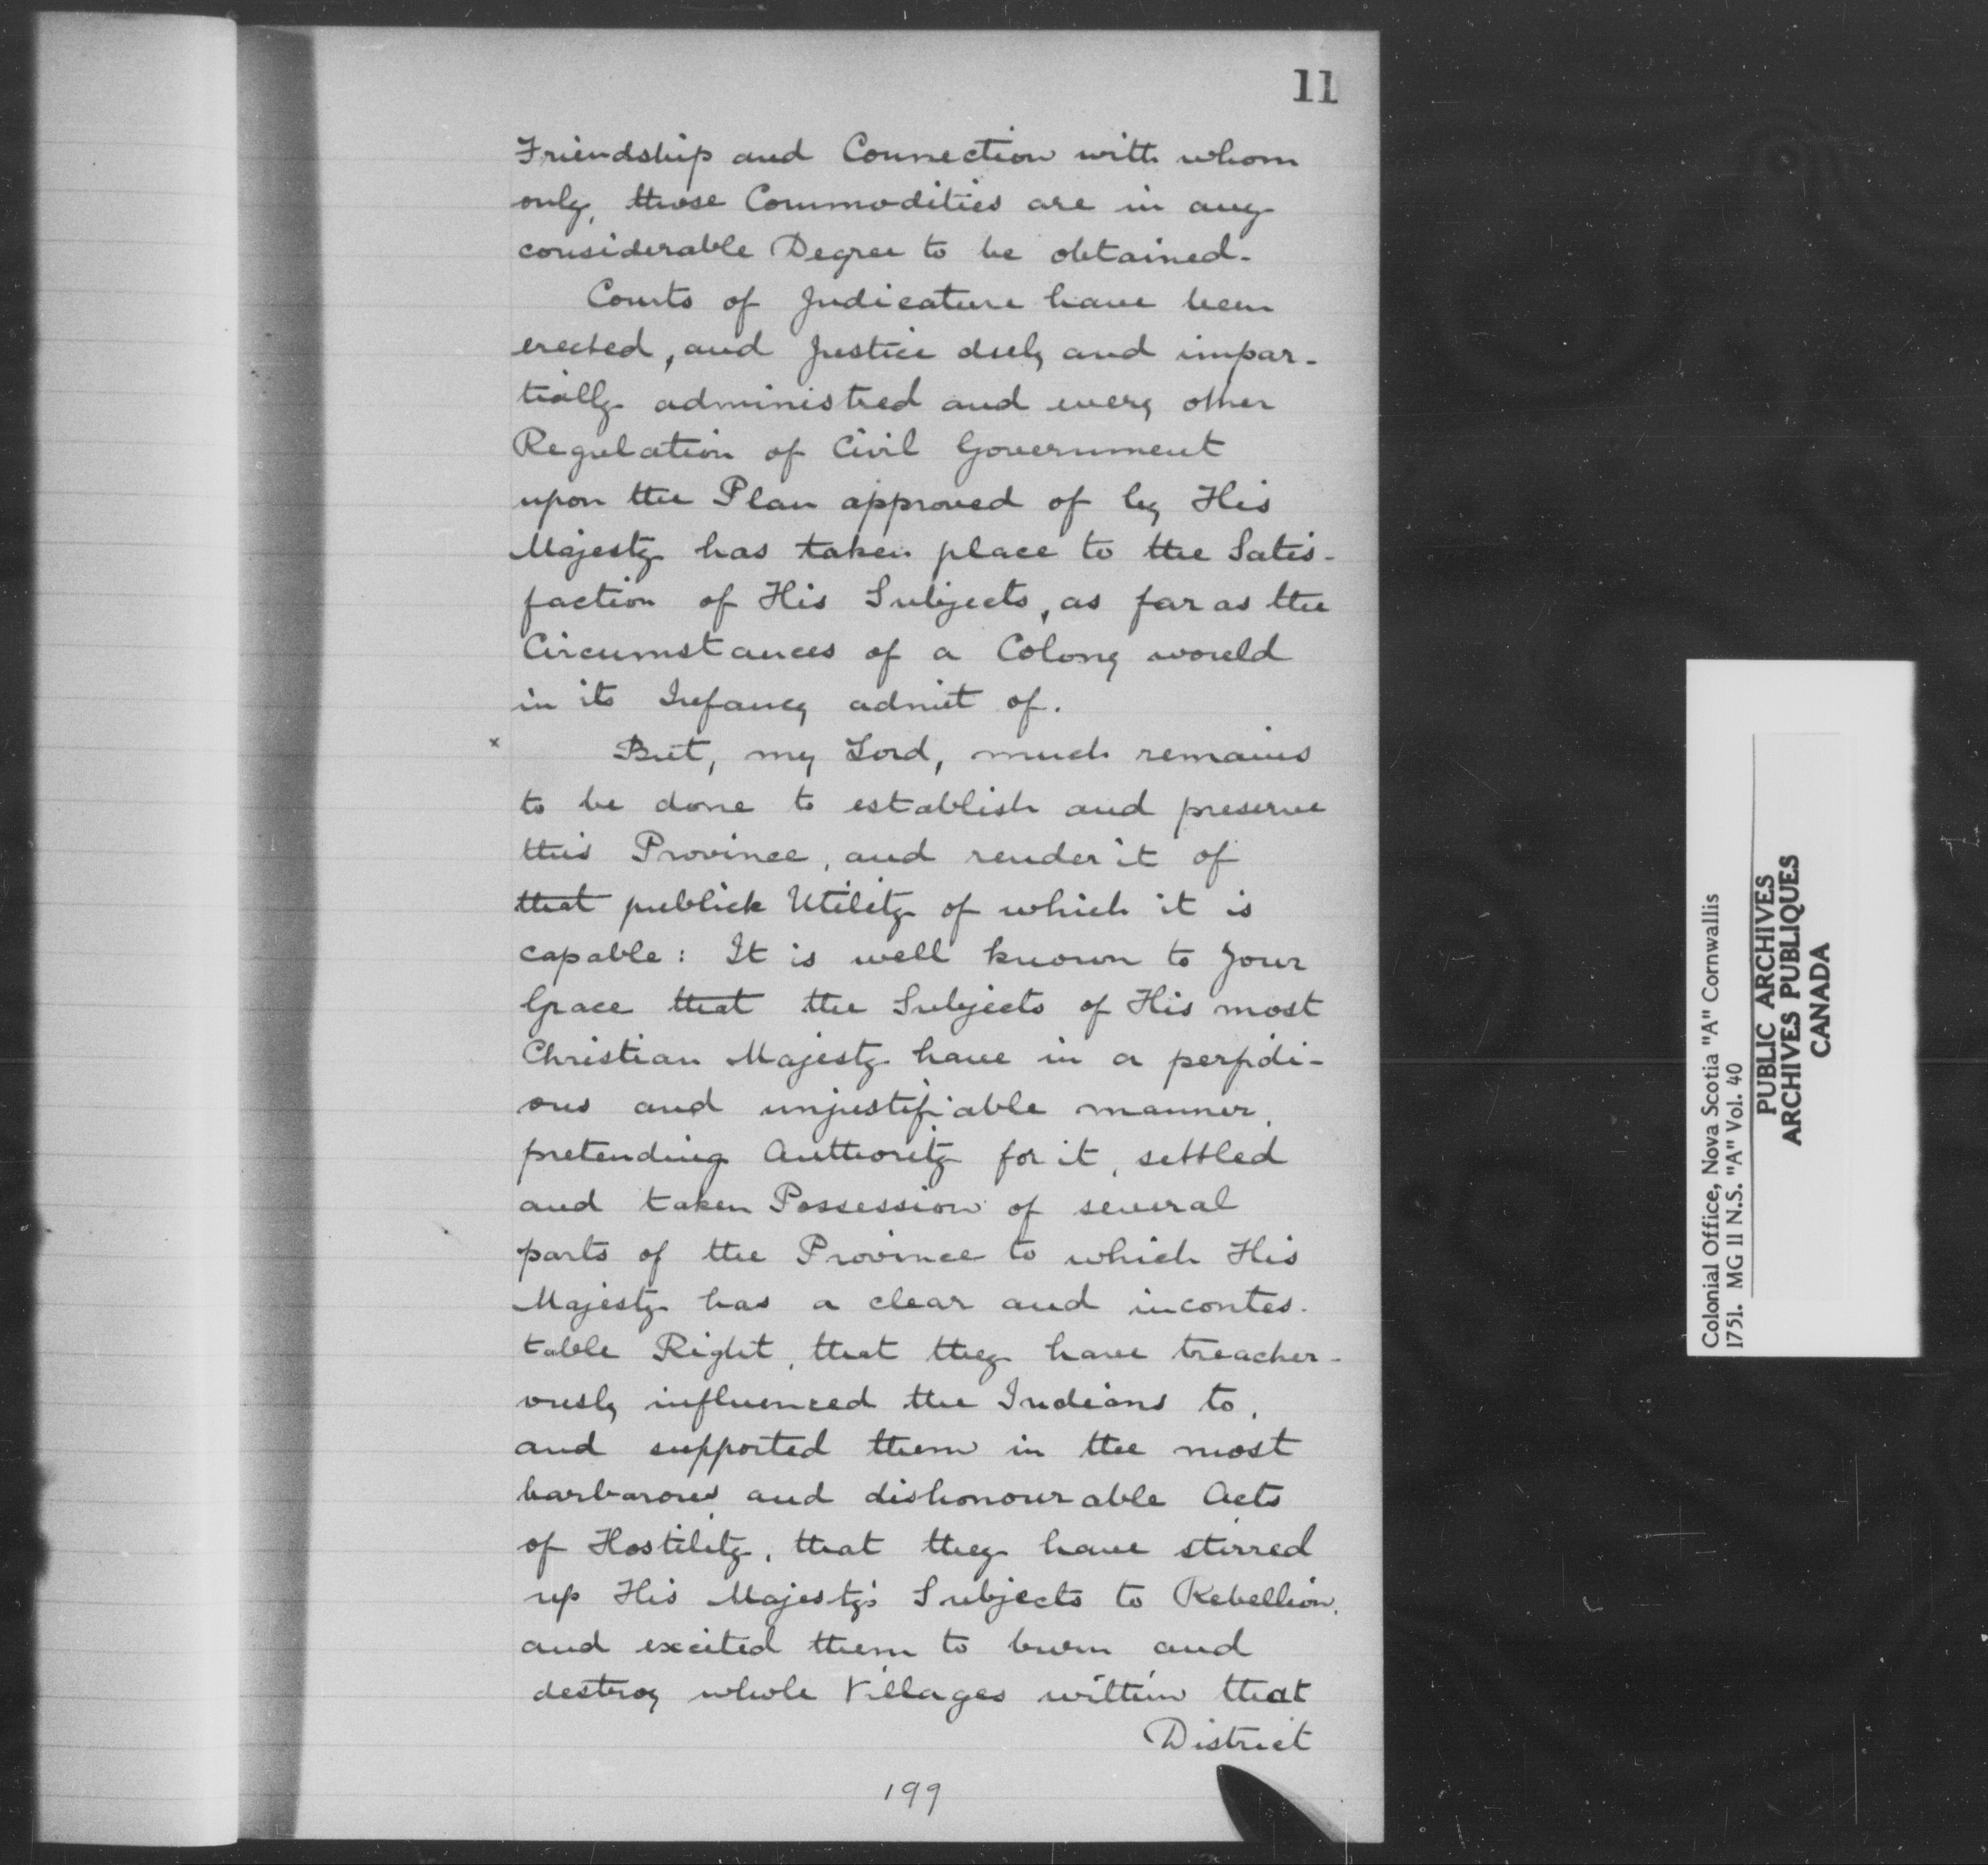 11
Friendship and Connection with whom
only, those Commodities are in any
considerable Degree to be obtained.
Courts of Judicature have been
erected, and Justice duly and impar-
tially administred and every other
Regulation of Civil Government
upon the Plan approved of by His
Majesty has taken place to the Satis-
faction of His Subjects, as far as the
Circumstances of a Colony would
in its Infancy admit of.
x But, my Lord, much remains
to be done to establish and preserve
this Province, and render it of
that publick Utility of which it is
capable: It is well known to Your
Grace that the Subjects of His most
Christian Majesty have in a perfidi-
ous and unjustifiable manner,
pretending Authority for it, settled
and taken Possession of several
parts of the Province to which His
Majesty has a clear and incontes-
table Right, that they have treacher-
ously influenced the Indians to,
and supported them in the most
barbarous and dishonourable Acts
of Hostility, that they have stirred
up His Majesty's Subjects to Rebellion,
and excited them to burn and
destroy whole Villages within that
District
199
Colonial Office, Nova Scotia "A" Cornwallis
1751. MG 11 N.S. "A" Vol. 40
PUBLIC ARCHIVES
ARCHIVES PUBLIQUES
CANADA